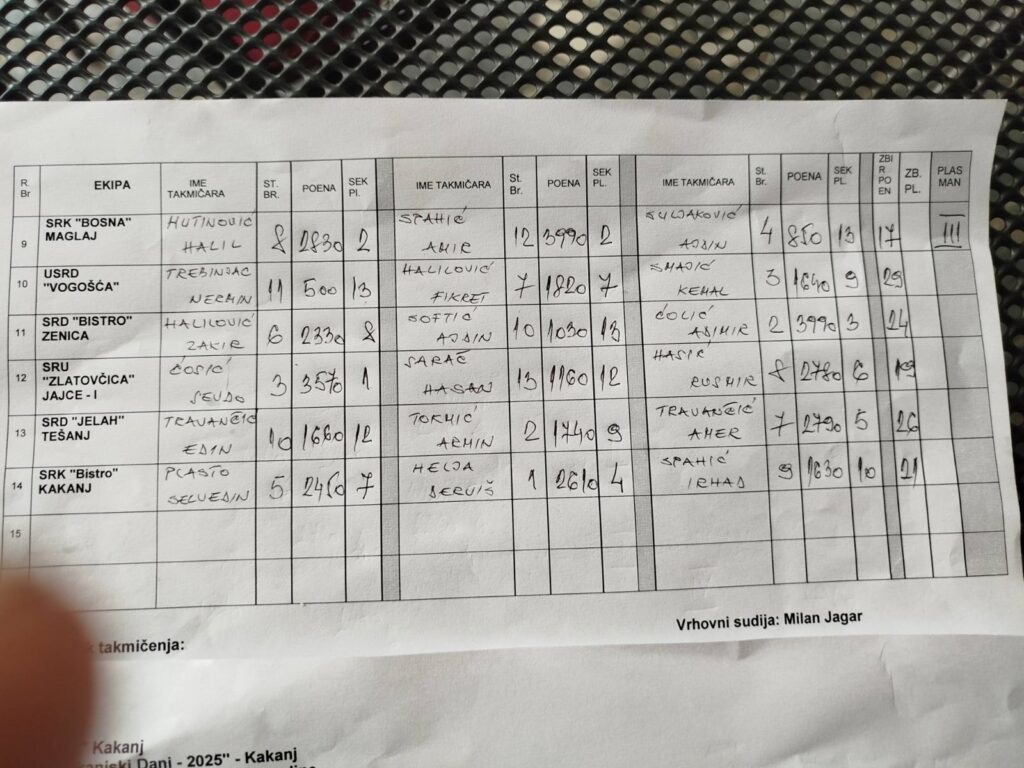 R. Br EKIPA IME TAKMIČARA ST. BR. POENA SEK Pl. IME TAKMIČARA St. Br. POENA SEK PL. IME TAKMIČARA St. Br. POENA SEK PL. ZBI R P OEN ZB. PL. PLAS MAN
9 SRK "BOSNA" MAGLAJ HUTINOVIĆ HALIL 8 2830 2 SPAHIĆ AMIR 12 3990 2 SULJAKOVIĆ AJDIN 4 850 13 17 III
10 USRD "VOGOŠĆA" TREBINJAC NERMIN 11 500 13 HALILOVIĆ FIKRET 7 1820 7 SMAJIĆ KEMAL 3 1640 9 29
11 SRD "BISTRO" ZENICA HALILOVIĆ ZAKIR 6 2330 8 SOFTIĆ AJDIN 10 1030 13 ĆOLIĆ ADIMIR 2 3990 3 24
12 SRU "ZLATOVČICA" JAJCE - I ĆOSIĆ SEUDO 3 3570 1 SARAČ HASAN 13 1160 12 HASIĆ RUSMIR 8 2780 6 19
13 SRD "JELAH" TEŠANJ TRAVANČIĆ EDIN 10 1660 12 TOKMIĆ ARMIN 2 1740 9 TRAVANČIĆ AMER 7 2790 5 26
14 SRK "Bistro" KAKANJ PLASTO SELVEDIN 5 2450 7 HELJA DERVIŠ 1 2610 4 SPAHIĆ IRHAD 9 1630 10 21
15
takmičenja:
Vrhovni sudija: Milan Jagar
" Kakanj
Dani - 2025" - Kakanj